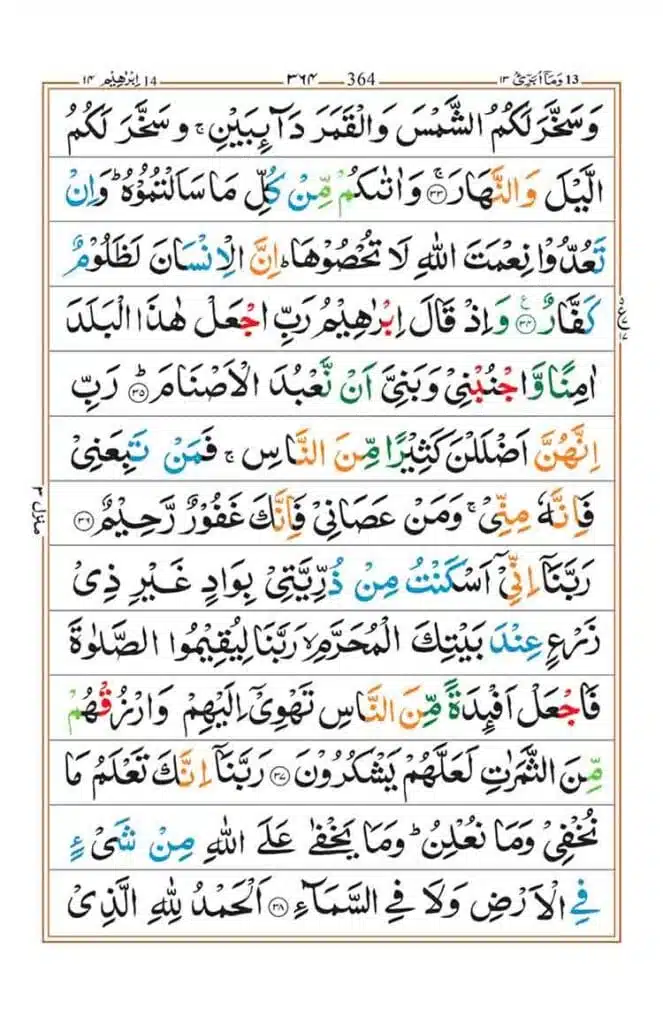 ابرٰهيم 14 ١٤ ٣٦٤ 364 وما ابرئ 13 ١٣
وَسَخَّرَ لَكُمُ الشَّمْسَ وَالْقَمَرَ دَآئِبَيْنِ ۚ وَسَخَّرَ لَكُمُ
الَّيْلَ وَالنَّهَارَ ۚ ﴿٣٣﴾ وَاٰتٰىكُمْ مِّنْ كُلِّ مَا سَاَلْتُمُوْهُ ؕ وَاِنْ
تَعُدُّوْا نِعْمَتَ اللّٰهِ لَا تُحْصُوْهَا ؕ اِنَّ الْاِنْسَانَ لَظَلُوْمٌ
كَفَّارٌ ﴿٣٤﴾ ع وَاِذْ قَالَ اِبْرٰهِيْمُ رَبِّ اجْعَلْ هٰذَا الْبَلَدَ
اٰمِنًا وَّاجْنُبْنِيْ وَبَنِيَّ اَنْ نَّعْبُدَ الْاَصْنَامَ ؕ ﴿٣٥﴾ رَبِّ
اِنَّهُنَّ اَضْلَلْنَ كَثِيْرًا مِّنَ النَّاسِ ۚ فَمَنْ تَبِعَنِيْ
فَاِنَّهٗ مِنِّيْ ۚ وَمَنْ عَصَانِيْ فَاِنَّكَ غَفُوْرٌ رَّحِيْمٌ ﴿٣٦﴾
منزل ٣
رَبَّنَاۤ اِنِّيْۤ اَسْكَنْتُ مِنْ ذُرِّيَّتِيْ بِوَادٍ غَيْرِ ذِيْ
زَرْعٍ عِنْدَ بَيْتِكَ الْمُحَرَّمِ ۙ رَبَّنَا لِيُقِيْمُوا الصَّلٰوةَ
فَاجْعَلْ اَفْـِٕدَةً مِّنَ النَّاسِ تَهْوِيْۤ اِلَيْهِمْ وَارْزُقْهُمْ
مِّنَ الثَّمَرٰتِ لَعَلَّهُمْ يَشْكُرُوْنَ ﴿٣٧﴾ رَبَّنَاۤ اِنَّكَ تَعْلَمُ مَا
نُخْفِيْ وَمَا نُعْلِنُ ؕ وَمَا يَخْفٰى عَلَى اللّٰهِ مِنْ شَيْءٍ
فِي الْاَرْضِ وَلَا فِي السَّمَآءِ ﴿٣٨﴾ اَلْحَمْدُ لِلّٰهِ الَّذِيْ